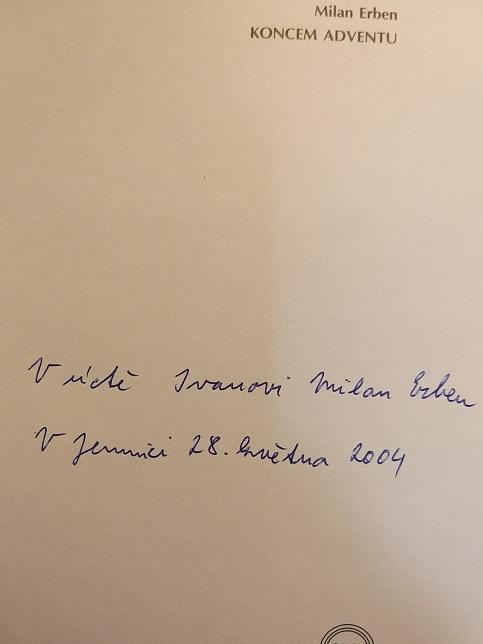 Milan Erben
KONCEM ADVENTU
V úctě Ivanovi Milan Erben
V Jemnici 28. května 2004